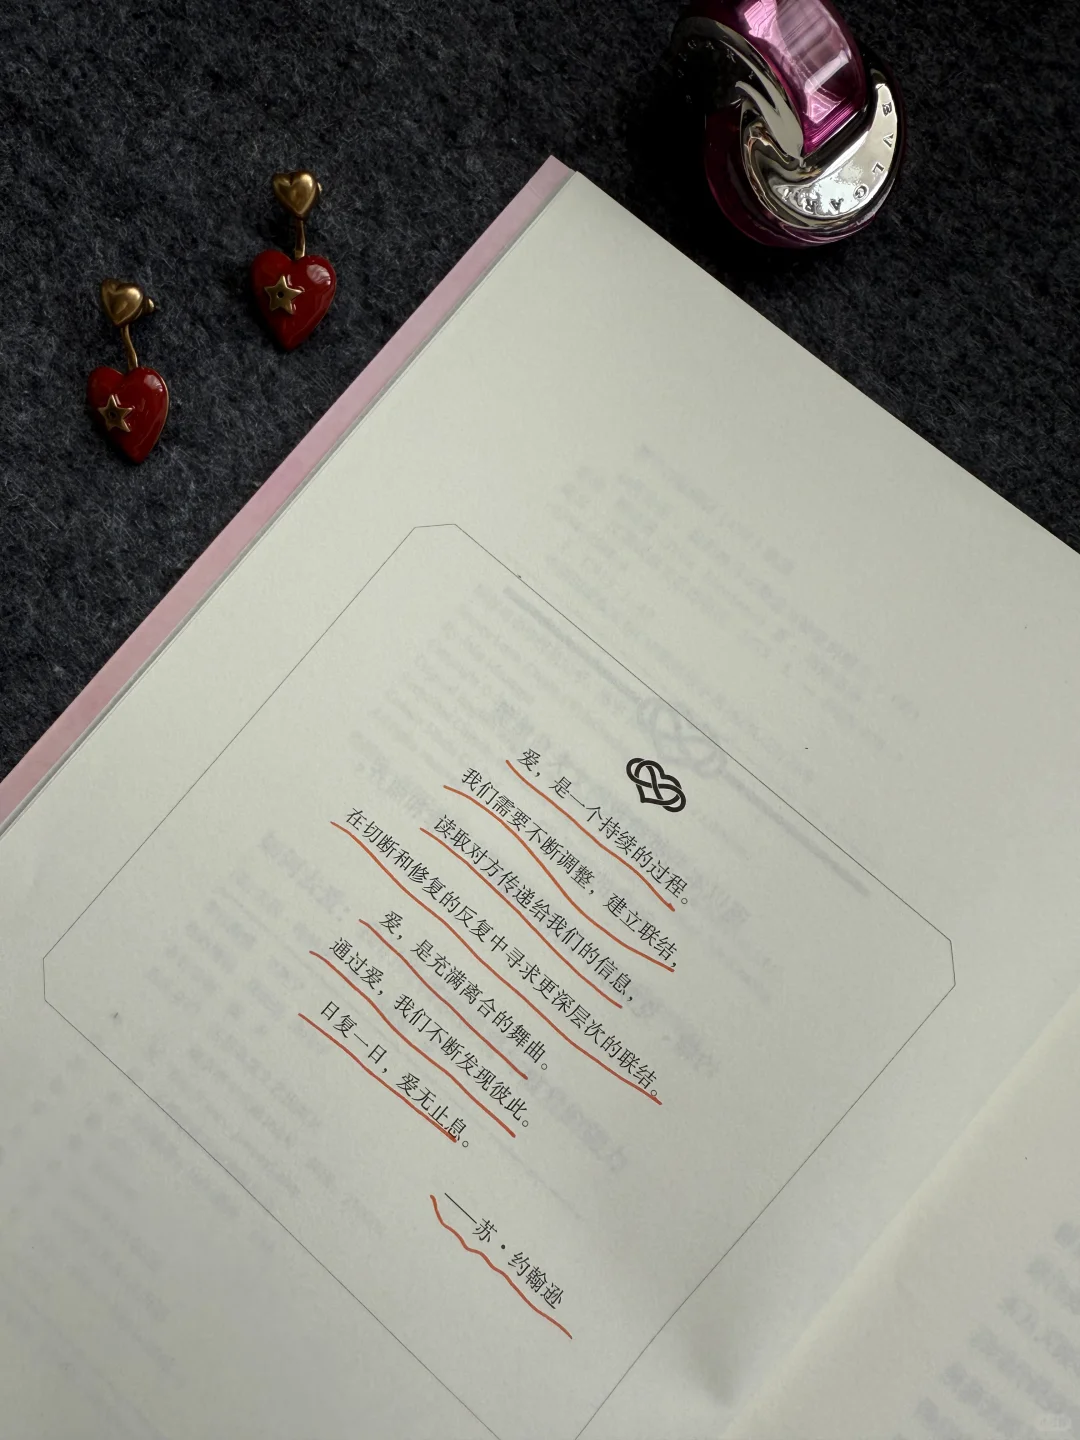 BVLGARI
爱，是一个持续的过程。
我们需要不断调整，建立联结，
读取对方传递给我们的信息，
在切断和修复的反复中寻求更深层次的联结。
爱，是充满离合的舞曲。
通过爱，我们不断发现彼此。
日复一日，爱无止息。
——苏·约翰逊